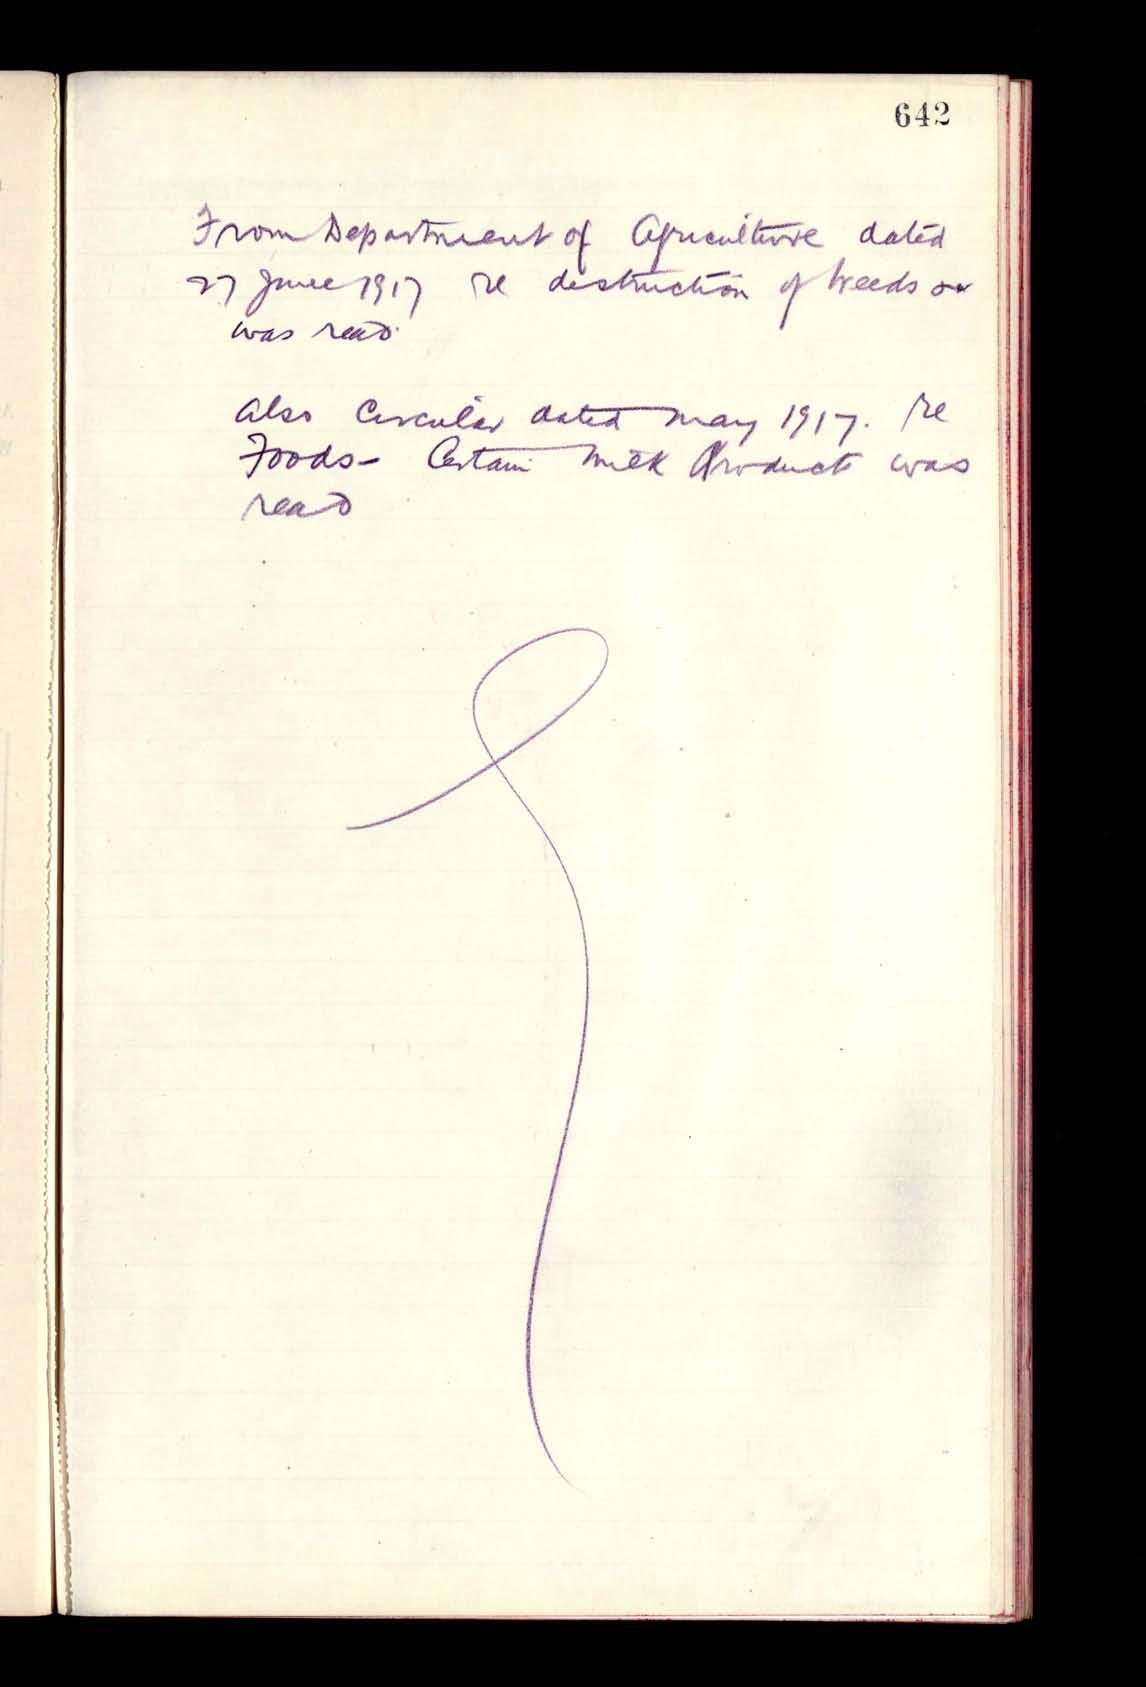 642
From Department of Agriculture dated
27 June 1917 re destruction of Weeds
was read.
Also Circular dated May 1917. re
Foods - Certain Milk Products was
read